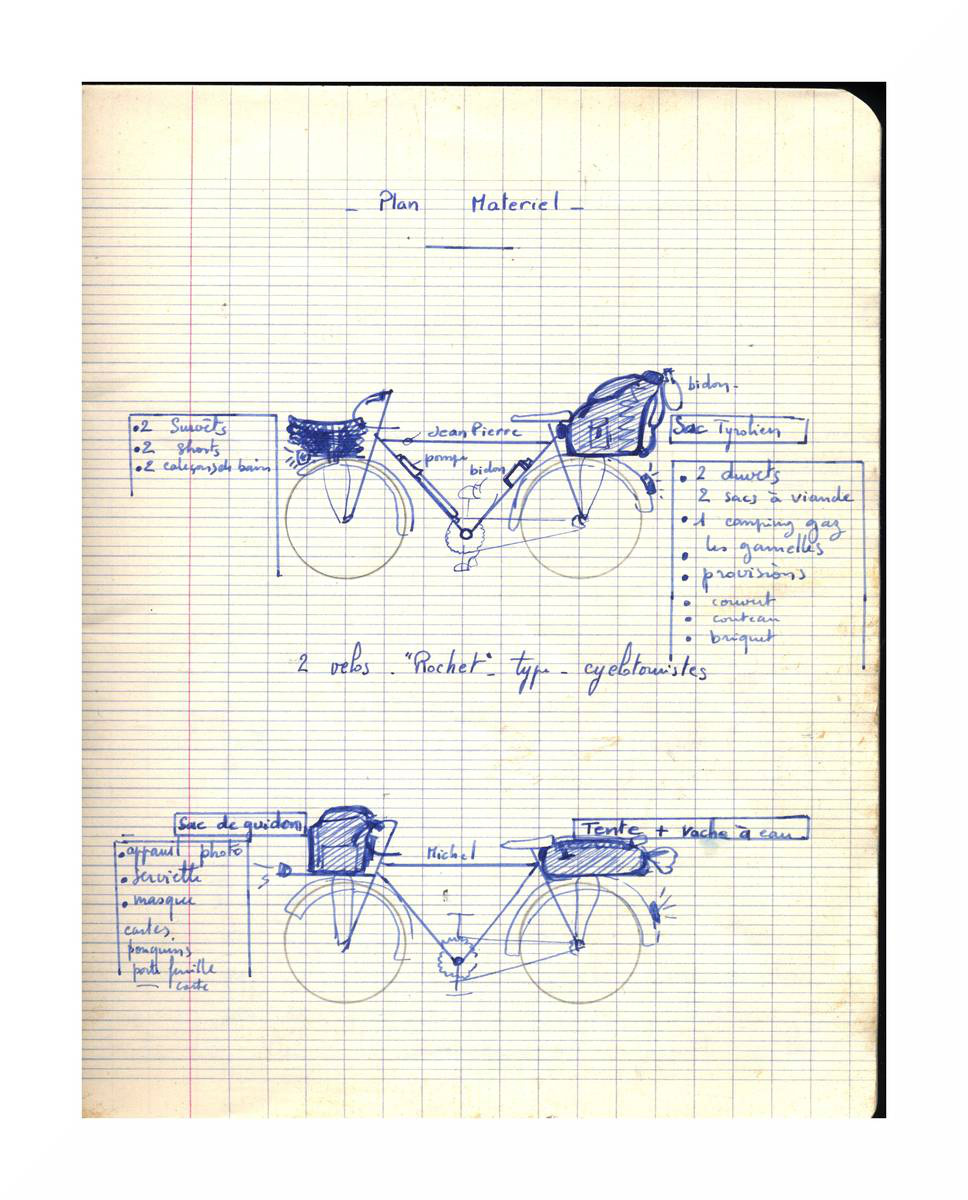 - Plan Materiel -
bidon -
• 2 Survêts
• 2 shorts
• 2 caleçons de bain
Jean Pierre
pompe
bidon
Sac Tyrolien
• 2 duvets
2 sacs à viande
• 1 camping gaz
• les gamelles
• provisions
• couvert
• couteau
• briquet
2 velos - "Rochet" - type - cyclotouristes
Sac de guidon
• appareil photo
• serviette
• masque
cartes
bouquins
porte feuille
carte
Michel
Tente + vache à eau